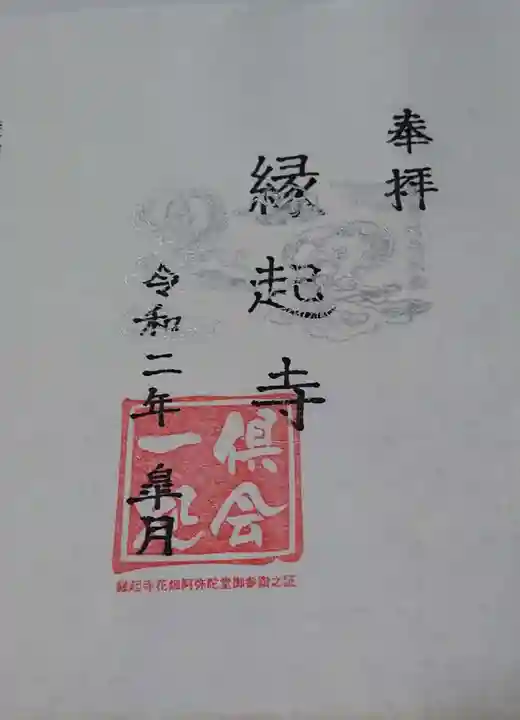 奉拝
縁起寺
令和二年 皐月
倶会一処
縁起寺花畑阿弥陀堂御参詣之証